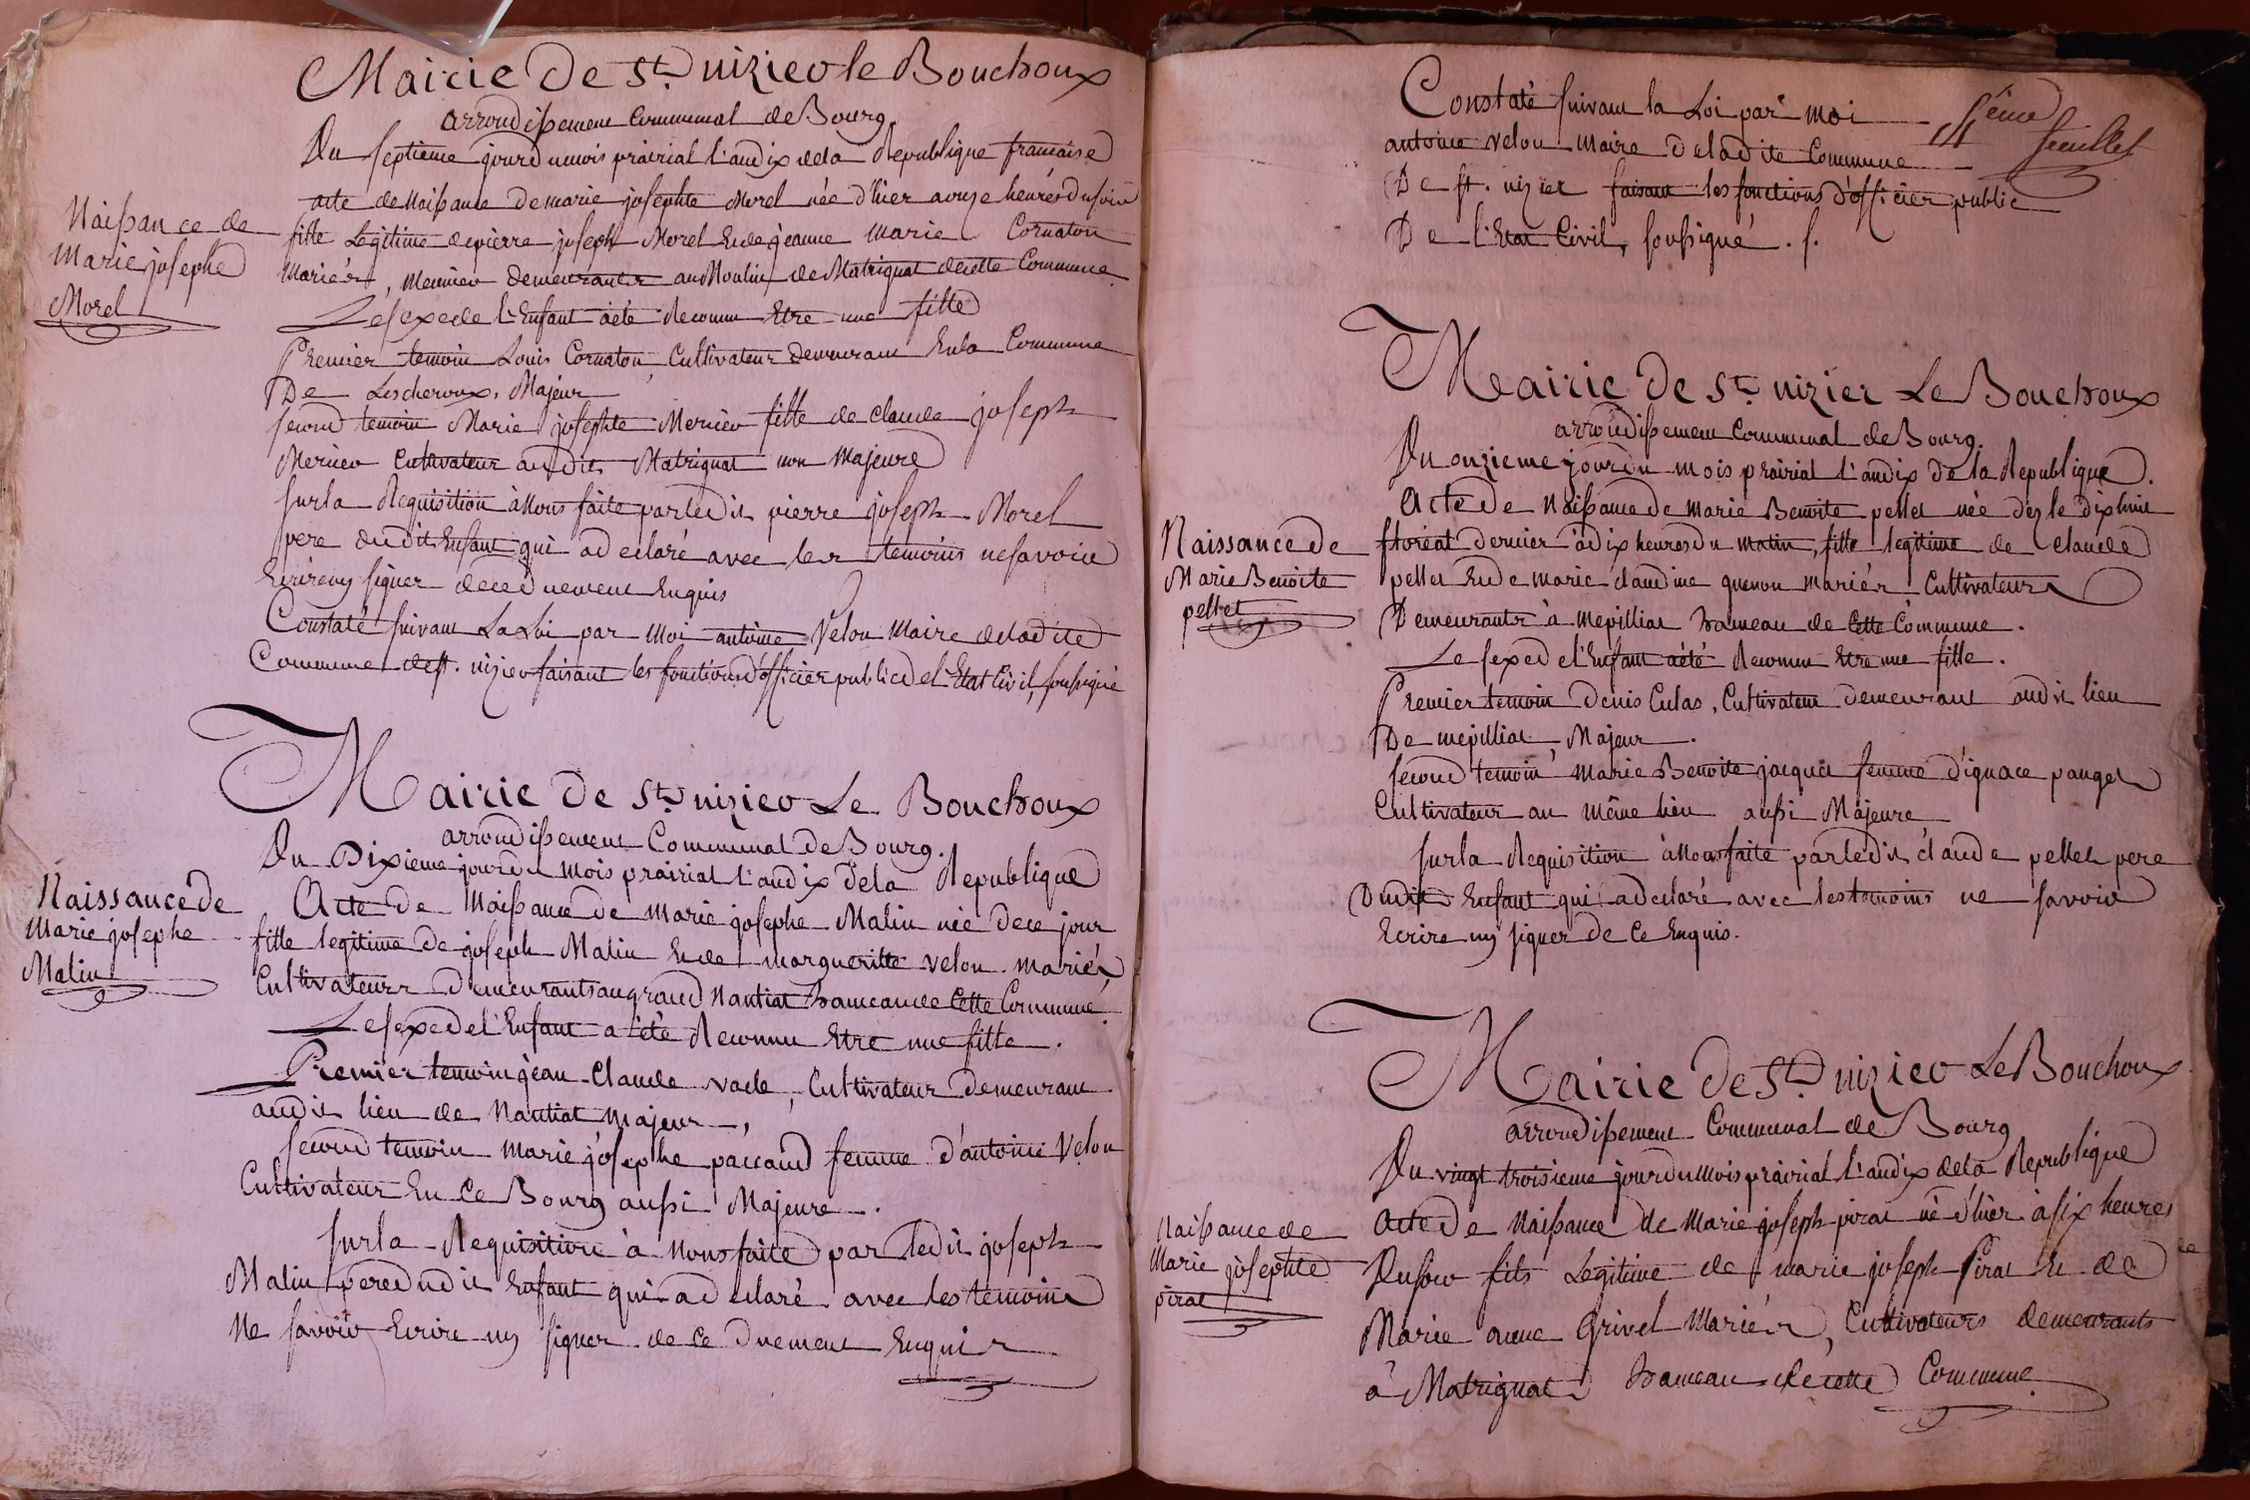 Mairie de St. nizier le Bouchoux
arrondissement Communal de Bourg.
Du septieme jour du mois prairial l'an dix de la Republique francaise
Naissance de
Marie josephe
Morel
acte de Naissance de marie josephte Morel née d'hier a onze heures du soir
fille Legitime de pierre joseph Morel Et de jeanne Marie Cornaton
Mariés, Meunier demeurants au Moulin de Matrignat de cette Commune.
Le sexe de l'Enfant a été Reconnu Etre une fille
Premier temoin Louis Cornaton, Cultivateur demeurant En la Commune
De Lescheroux, Majeur
second temoin Marie josephte Mercier fille de claude joseph
Mercier Cultivateur audit Matrignat non Majeure
sur la Requisition à Nous faite par ledit pierre joseph Morel
pere dudit Enfant qui a declaré avec les temoins ne savoir
Ecrire ny signer de ce duement Enquis
Constaté suivant La Loi par Moi antoine Velon Maire de ladite
Commune de st. nizier faisant les fonctions d'officier public de l'Etat Civil, soussigné
Mairie de St. nizier Le Bouchoux
arrondissement Communal de Bourg.
Du Dixieme jour du Mois prairial l'an dix de la Republique
Naissance de
Marie josephe
Malin
Acte de Naissance de Marie josephe Malin née de ce jour
fille legitime de joseph Malin Et de margueritte Velon mariés,
Cultivateurs Demeurants au grand Nantiat hameau de Cette Commune.
Le sexe de l'Enfant a été Reconnu Etre une fille.
Premier temoin jean Claude vade, Cultivateur Demeurant
audit lieu de Nantiat Majeur,
second temoin marie josephe paccaud femme d'antoine Velon
Cultivateur En Ce Bourg aussi Majeure.
sur la Requisition à Nous faite par ledit joseph
Malin pere dudit Enfant qui a declaré avec les temoins
Ne savoir Ecrire ny signer de ce duement Enquis
5eme feuillet
Constaté suivant la Loi par moi
antoine velon Maire de ladite Commune
De st. nizier faisant les fonctions d'officier public
De l'Etat Civil, soussigné. s.
Mairie de St. nizier Le Bouchoux
arrondissement Communal de Bourg.
Du onzieme jour du mois prairial l'an dix de la Republique.
Naissance de
Marie Benoite
pellet
Acte de Naissance de marie Benoite pellet née dez le dix huit
floréal dernier à dix heures du matin, fille legitime de claude
pellet Et de marie claudine guenon mariés Cultivateurs
Demeurants à mepilliat hameau de Cette Commune.
Le sexe de l'Enfant a été Reconnu Etre une fille.
Premier temoin Denis Culas, Cultivateur demeurant audit lieu
De mepilliat, Majeur.
second temoin Marie Benoite jacquet femme d'ignace panget
Cultivateur au même lieu aussi Majeure
sur la Requisition à Nous faite par ledit claude pellet pere
Dudit Enfant qui a declaré avec les temoins ne savoir
Ecrire ny signer de Ce Enquis.
Mairie de St. nizier Le Bouchoux
arrondissement Communal de Bourg
Du vingt troisieme jour du Mois prairial l'an dix de la Republique
Naissance de
Marie josephte
pirat
Acte de Naissance de Marie joseph pirat né d'hier à six heures
Du soir fils Legitime de marie joseph Pirat Et de
Marie anne Grivel Mariés, Cultivateurs demeurants
à Matrignat hameau de cette Commune.